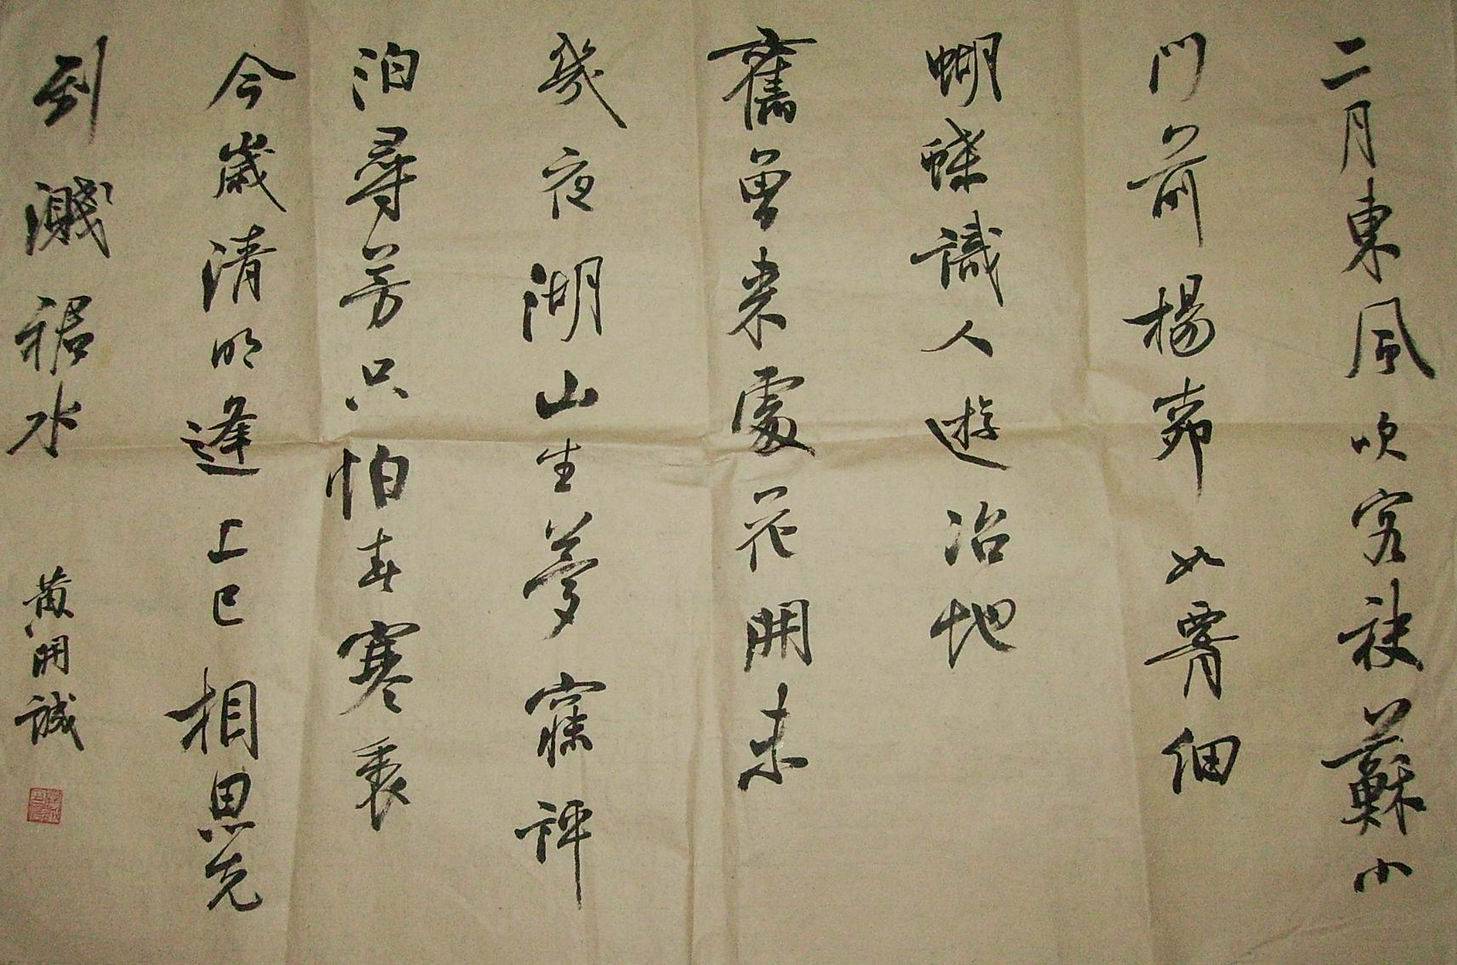 二月東風吹客袂蘇小
門前楊柳如腰細
蝴蝶識人遊冶地
舊曾來處花開未
幾夜湖山生夢寐評
泊尋芳只怕春寒裏
今歲清明逢上巳相思先
到濺裙水
黃開誠